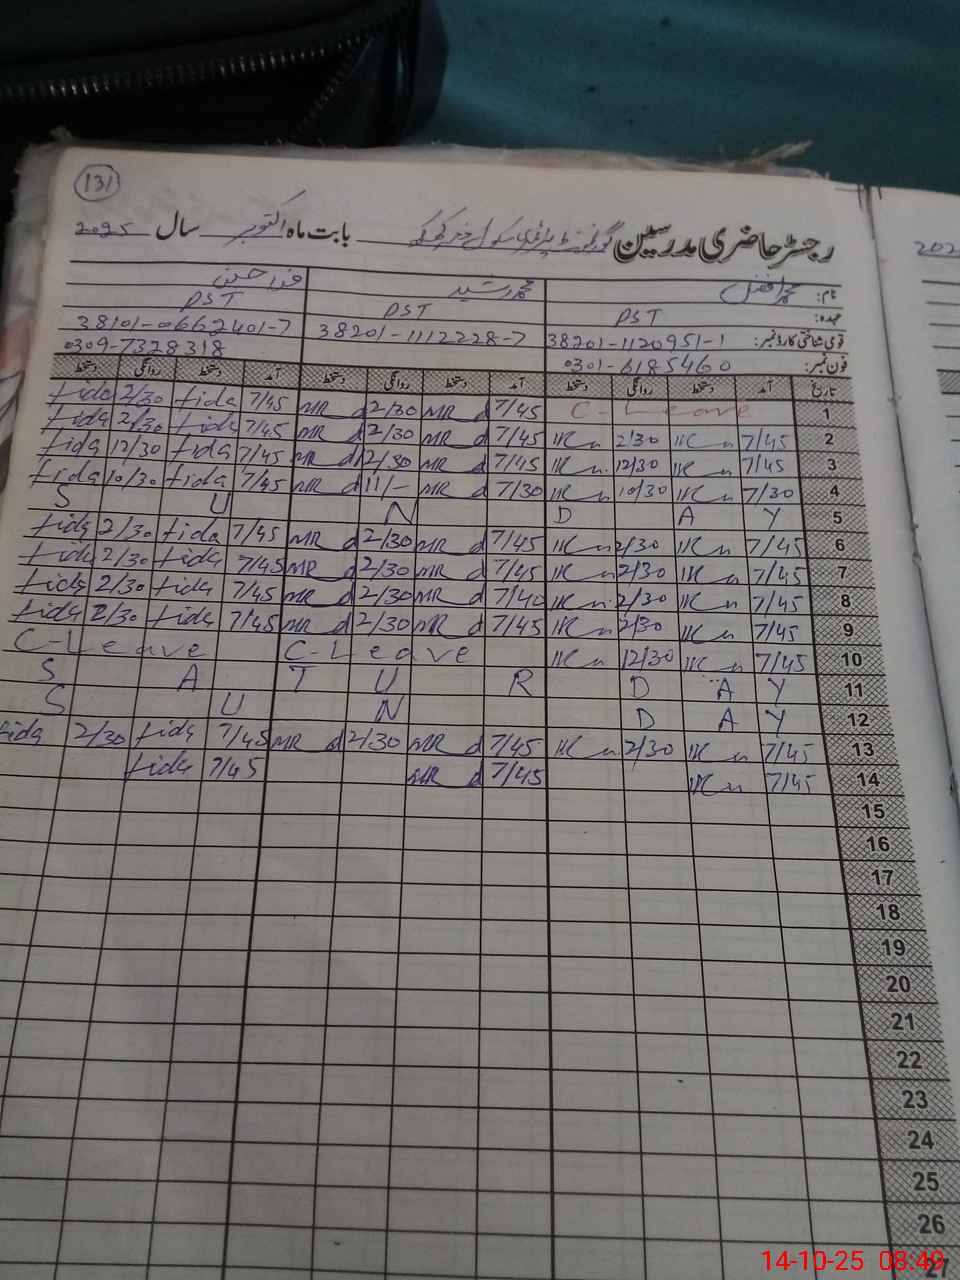 131
رجسٹر حاضری مدرسین گورنمنٹ پرائمری سکول بابت ماہ اکتوبر سال 2025
نام: محمد افضل محمد رشید
عہدہ: PST PST PST
قومی شناختی کارڈ نمبر: 38201-1120951-1 38201-1112228-7 38101-0662401-7
فون نمبر: 0301-6185460 0309-7328318
تاریخ آمد دستخط روانگی دستخط آمد دستخط روانگی دستخط آمد دستخط روانگی دستخط
fida 2/30 fida 7/45 MR d 2/30 MR d 7/45 C-Leave 1
fida 2/30 fida 7/45 MR d 2/30 MR d 7/45 2/30 7/45 2
fida 12/30 fida 7/45 MR d 12/30 MR d 7/45 12/30 7/45 3
fida 10/30 fida 7/45 MR d 11/- MR d 7/30 10/30 7/30 4
S U N D A Y 5
fida 2/30 fida 7/45 MR d 2/30 MR d 7/45 2/30 7/45 6
fida 2/30 fida 7/45 MR d 2/30 MR d 7/45 2/30 7/45 7
fida 2/30 fida 7/45 MR d 2/30 MR d 7/40 2/30 7/45 8
fida 2/30 fida 7/45 MR d 2/30 MR d 7/45 2/30 7/45 9
C-Leave C-Leave 12/30 7/45 10
S A T U R D A Y 11
S U N D A Y 12
fida 2/30 fida 7/45 MR d 2/30 MR d 7/45 2/30 7/45 13
fida 7/45 MR d 7/45 7/45 14
15
16
17
18
19
20
21
22
23
24
25
26
27
202
14-10-25 08:49